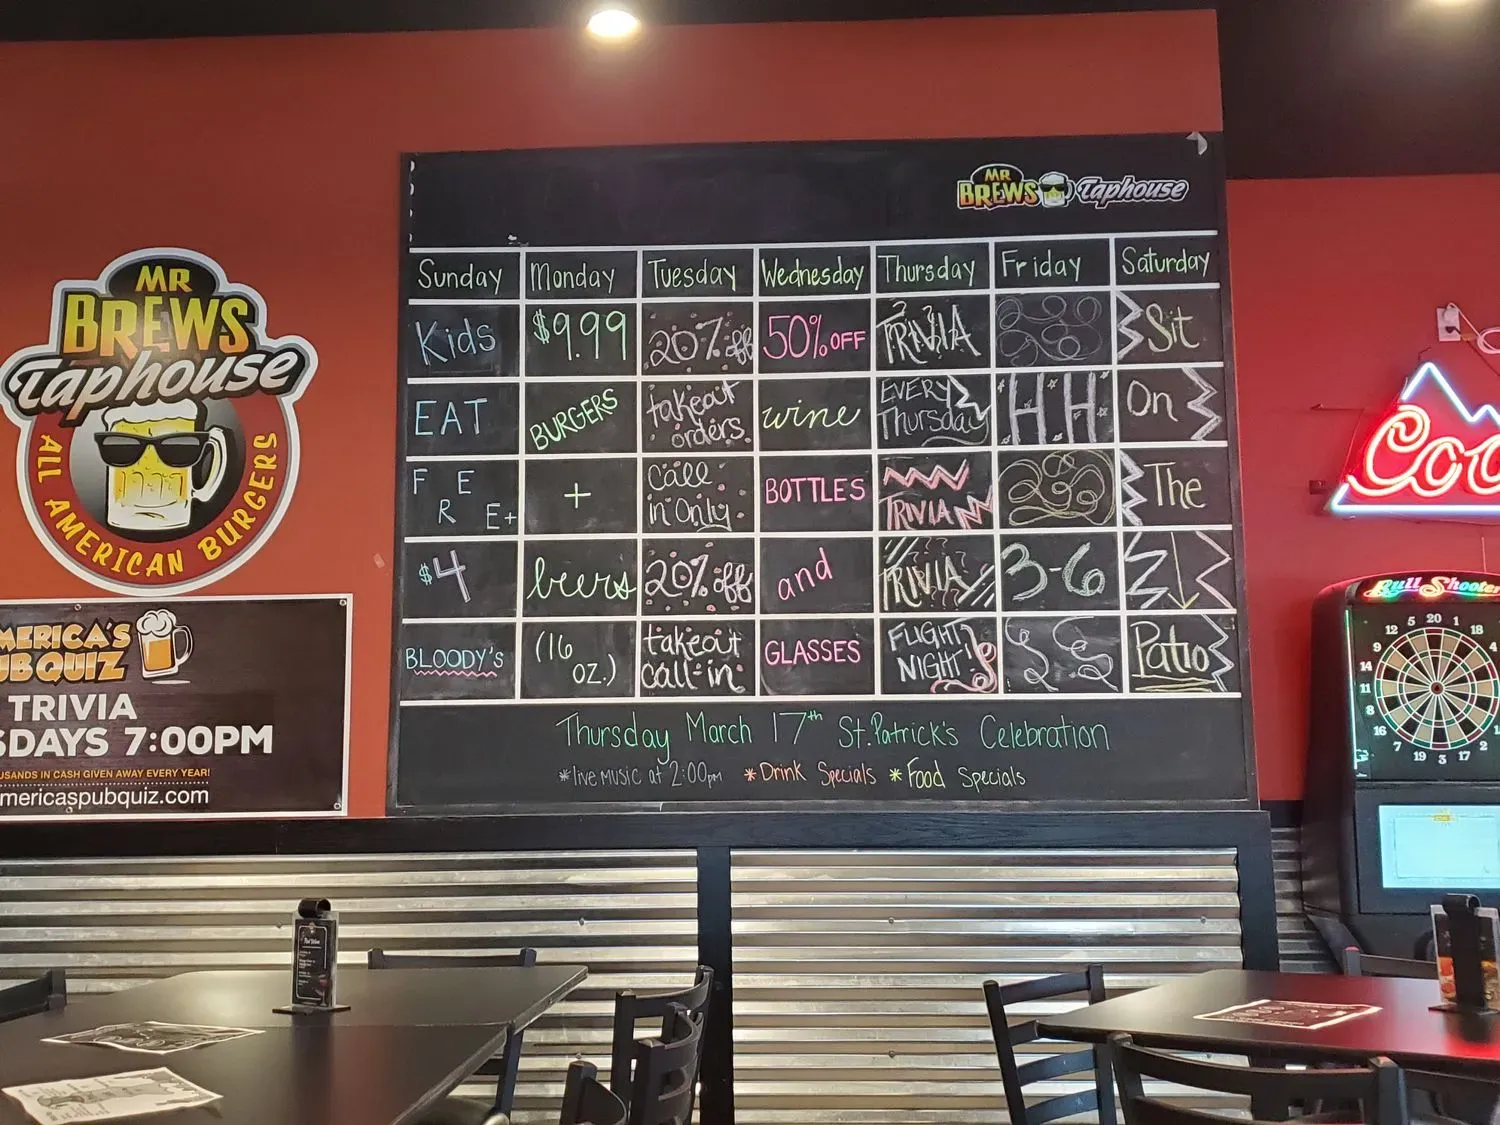 MR
BREWS Taphouse
Sunday Monday Tuesday Wednesday Thursday Friday Saturday
Kids $9.99 20% off 50% OFF TRIVIA Sit
EAT BURGERS takeout orders. wine EVERY Thursday H.H On
FREE+ + Call in Only. BOTTLES TRIVIA The
$4 beers 20% off and TRIVIA 3-6
BLOODY'S (16 oz.) takeout call-in GLASSES FLIGHT NIGHT! Patio
Thursday March 17th St. Patrick's Celebration
*live MUSIC at 2:00pm *Drink Specials *Food Specials
MR
BREWS
Taphouse
ALL AMERICAN BURGERS
MERICA'S
UBQUIZ
TRIVIA
SDAYS 7:00PM
USANDS IN CASH GIVEN AWAY EVERY YEAR!
mericaspubquiz.com
Coo
Bull Shooter
12 5 20 1 18
9 4
14
11
8
16
7 19 3 17 2